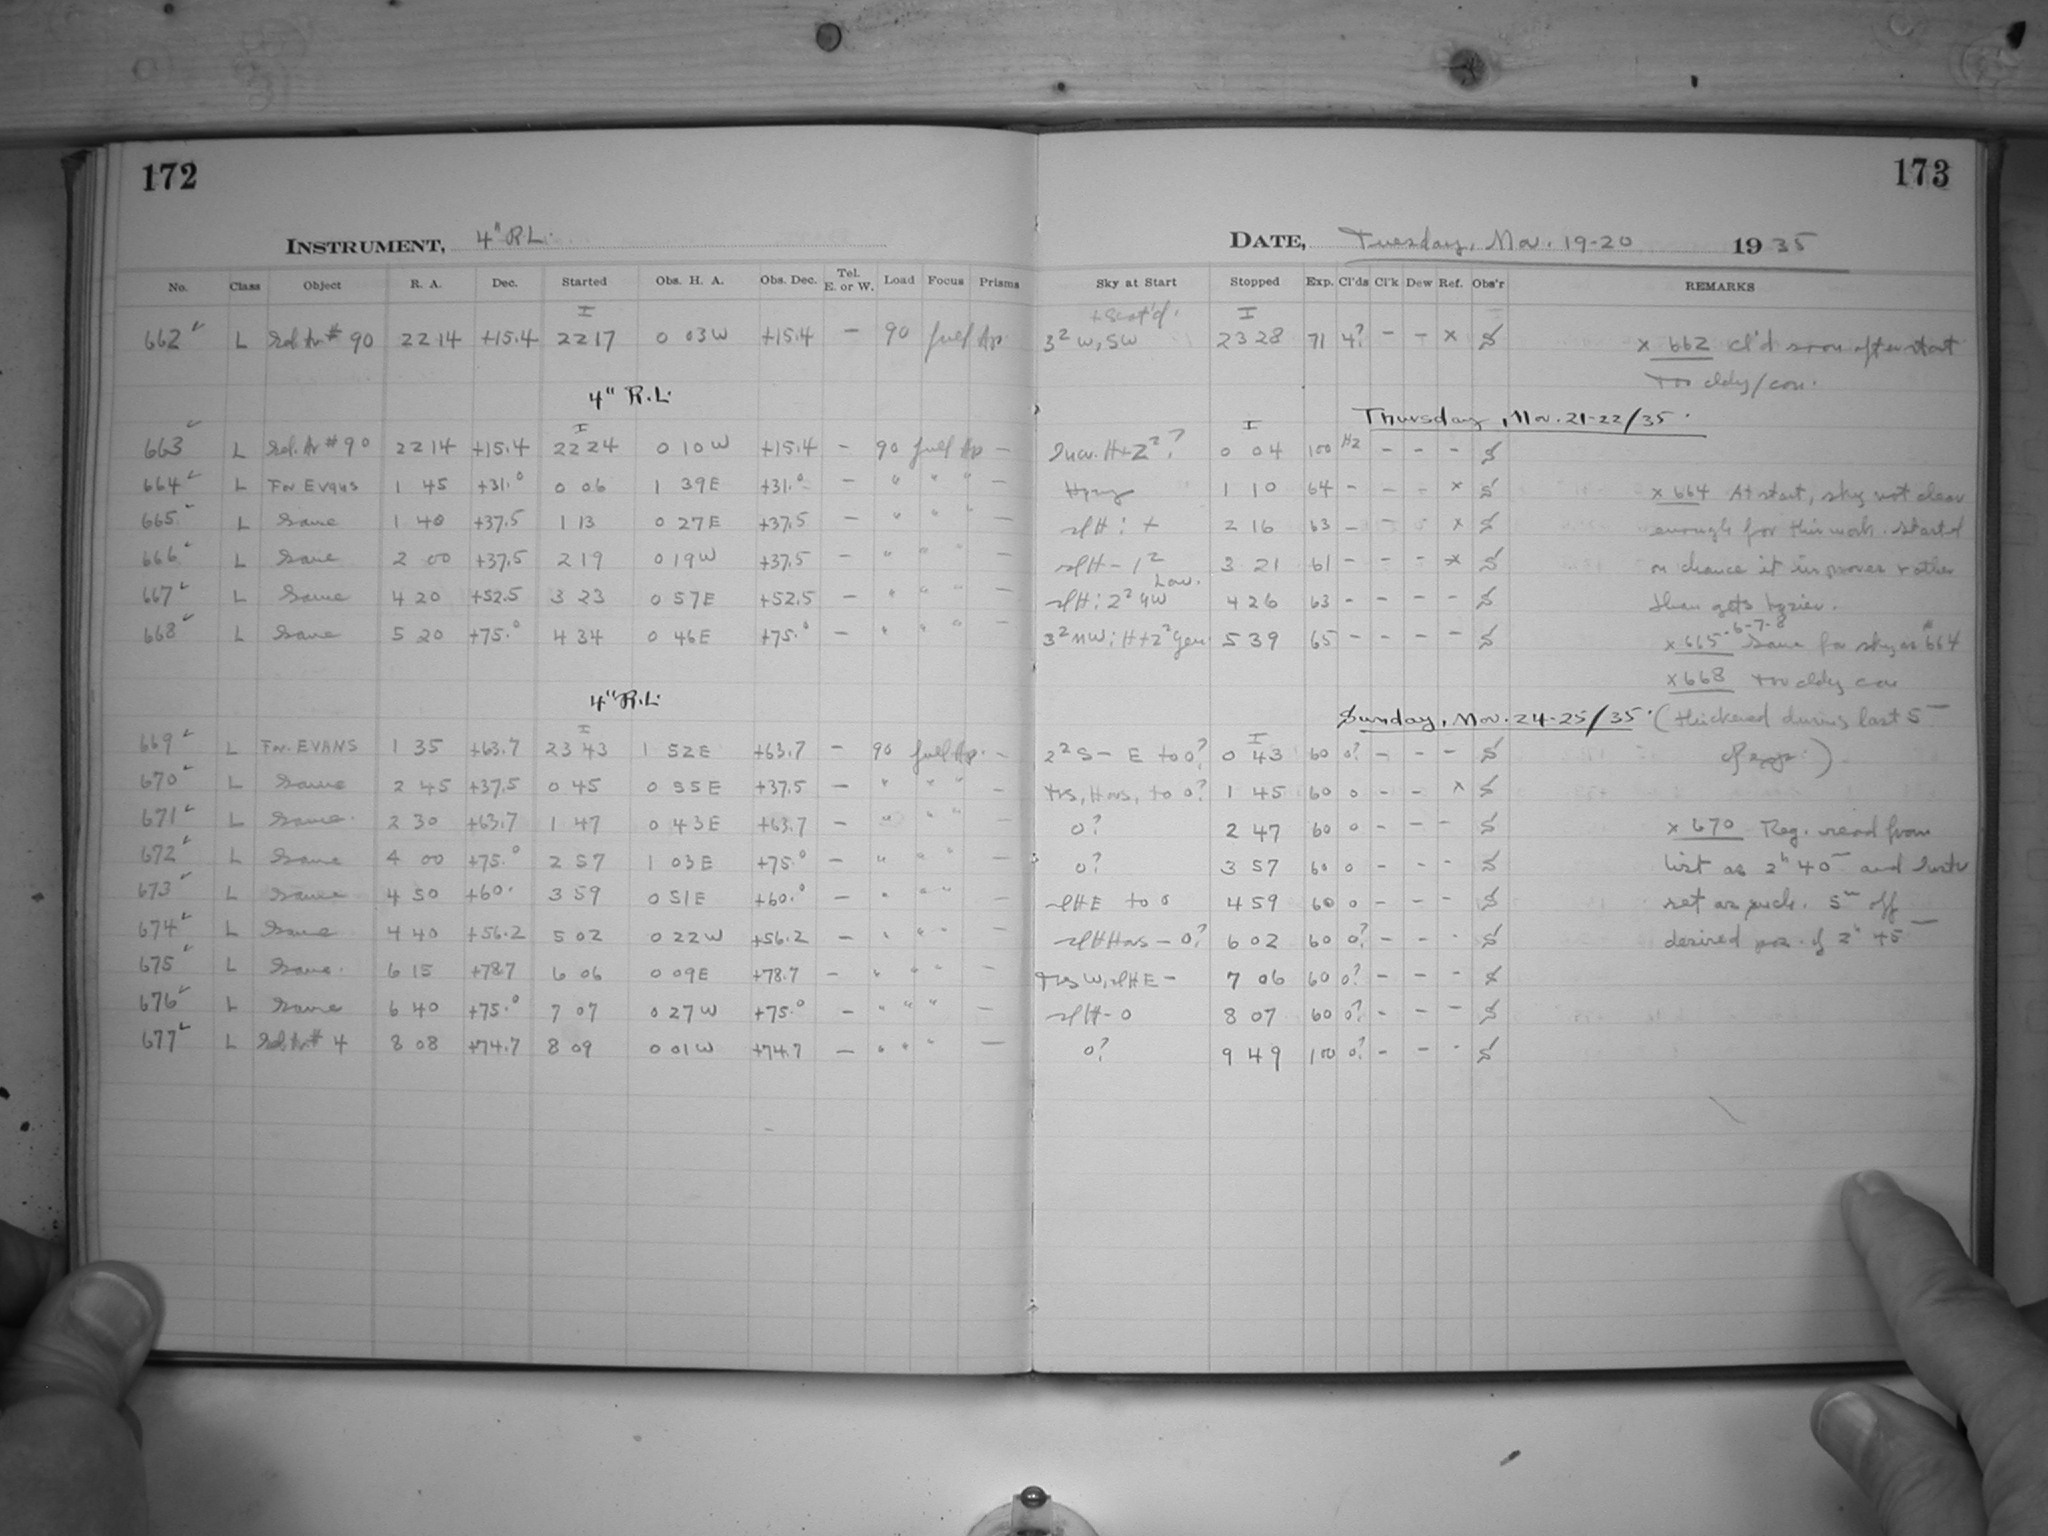 172
INSTRUMENT, 4" R.L.
No. Class Object R. A. Dec. Started Obs. H. A. Obs. Dec. Tel. E. or W. Load Focus Prisms
I
662 L Sel. Ar # 90 22 14 +15.4 22 17 0 03 W +15.4 - 90 full Ap.
4" R.L.
I
663 L Sel. Ar # 90 22 14 +15.4 22 24 0 10 W +15.4 - 90 full Ap -
664 L For Evans 1 45 +31.0 0 06 1 39 E +31.0 - " " " -
665 L Same 1 40 +37.5 1 13 0 27 E +37.5 - " " " -
666 L Same 2 00 +37.5 2 19 0 19 W +37.5 - " " " -
667 L Same 4 20 +52.5 3 23 0 57 E +52.5 - " " " -
668 L Same 5 20 +75.0 4 34 0 46 E +75.0 - " " " -
4" R.L.
I
669 L For EVANS 1 35 +63.7 23 43 1 52 E +63.7 - 90 full Ap. -
670 L Same 2 45 +37.5 0 45 0 55 E +37.5 - " " " -
671 L Same. 2 30 +63.7 1 47 0 43 E +63.7 - " " " -
672 L Same 4 00 +75.0 2 57 1 03 E +75.0 - " " " -
673 L Same 4 50 +60. 3 59 0 51 E +60.0 - " " " -
674 L Same 4 40 +56.2 5 02 0 22 W +56.2 - " " " -
675 L Same. 6 15 +78.7 6 06 0 09 E +78.7 - " " " -
676 L Same 6 40 +75.0 7 07 0 27 W +75.0 - " " " -
677 L Sel. Ar # 4 8 08 +74.7 8 09 0 01 W +74.7 - " " " -
173
DATE, Tuesday, Nov. 19-20 1935
Sky at Start Stopped Exp. Cl'ds Cl'k Dew Ref. Obs'r REMARKS
+ Scat'd. I
3² W, SW 23 28 71 4? - - x x 662 Cl'd soon after start
Too cldy/con.
Thursday, Nov. 21-22/35.
I
H+2²? 0 04 100 H2 - - -
1 10 64 - - - x x 664 At start, sky not clear
slH: + 2 16 63 - - - x enough for this work. Started
slH - 1² 3 21 61 - - - x on chance it improves rather
Low.
slH: 2² 4 26 63 - - - - than gets hazier.
3² NW: H+2² Gen. 5 39 65 - - - - x 665-6-7-8 Same for sky as #664
x 668 Too cldy con
Sunday, Nov. 24-25/35. (thickened during last 5m
I
2² S - E to 0? 0 43 60 0? - - - of exp.)
trs, Hors, to 0? 1 45 60 0 - - x
0? 2 47 60 0 - - - x 670 Reg. read from
0? 3 57 60 0 - - - list as 2h 40m and
slHE to 0 4 59 60 0 - - - set as such. 5m off
slH Hors - 0? 6 02 60 0? - - - desired pos. of 2h 45m
trs W, slHE - 7 06 60 0? - - -
slH - 0 8 07 60 0? - - -
0? 9 49 100 0? - - -